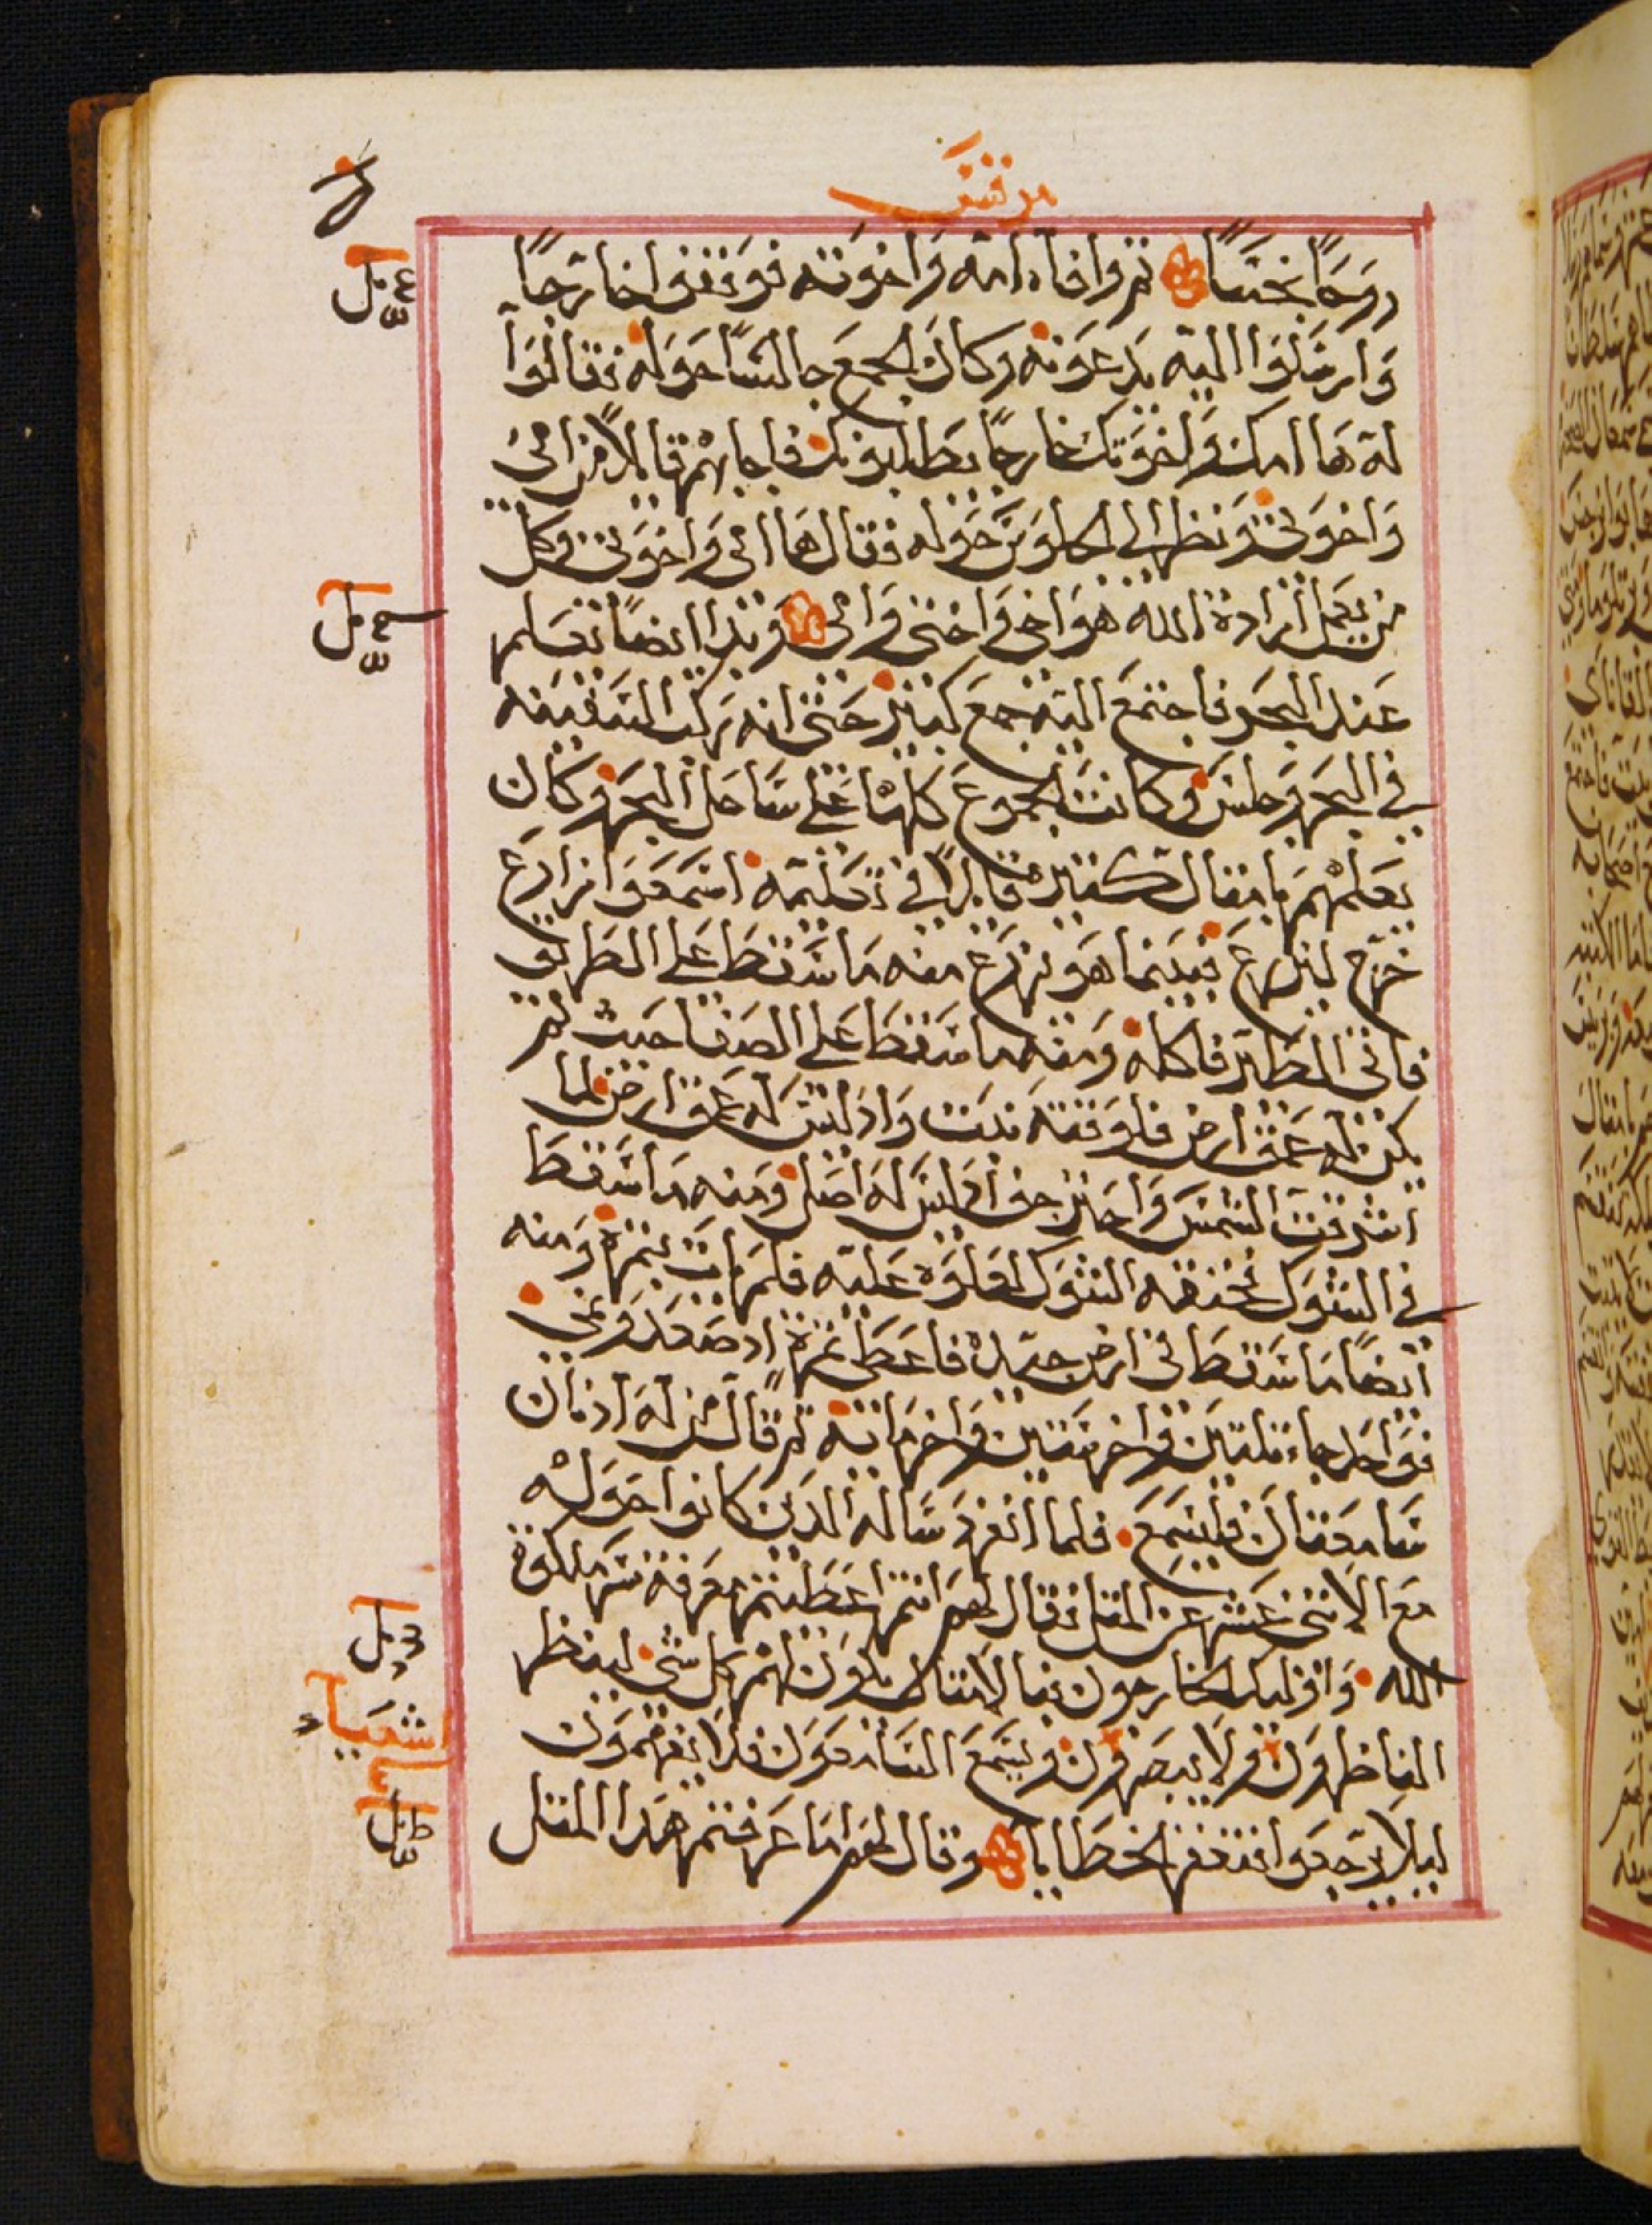 مرقس
روحًا نجسًا ثم وافا امه واخوته فوقفوا خارجًا
وارسلوا اليه يدعونه وكان الجمع جالسًا حوله فقالوا
له ها امك واخوتك خارجًا يطلبونك فاجابهم قايلًا من امي
واخوتي ونظر الى الجلوس حوله فقال ها امي واخوتي وكل
من يعمل ارادة الله هو اخي واختي وامي وبدا ايضًا يعلم
عند البحر فاجتمع اليه جمع كبير حتى انه ركب السفينه
في البحر وجلس وكانت الجموع كلها على ساحل البحر وكان
يعلمهم بامثال كثيره قايلًا في تعليمه اسمعوا زارع
خرج ليزرع فبينما هو يزرع منه ما سقط على الطريق
فاتى الطير فاكله ومنه ما سقط على الصفا حيث لم
يكن له عمق ارض فلوقته نبت واذ ليس له عمق ارض لما
اشرقت الشمس واحتر جف اذ ليس له اصل ومنه ما سقط
في الشوك فخنقه الشوك لعلوه عليه فلم يات بثمرة ومنه
ايضًا ما سقط في ارض جيدة فاعطى ثمرة اذ صعد ونمى
فواحد جاء بثلثين واخر بستين واخر بمايه ثم قال من له اذنان
سامعتان فليسمع فلما انفرد ساله الذين كانوا حوله
مع الاثنى عشر عن المثل فقال لهم انتم اعطيتم معرفة سر ملكوت
الله واوليك الخارجون فبالامثال يكون لهم كل شي لينظر
الناظرون ولا يبصرون ويسمع السامعون فلا يفهمون
ليلا يرجعوا فتغفر الخطايا وقال لهم اما عرفتم هذا المثل
اشعيا